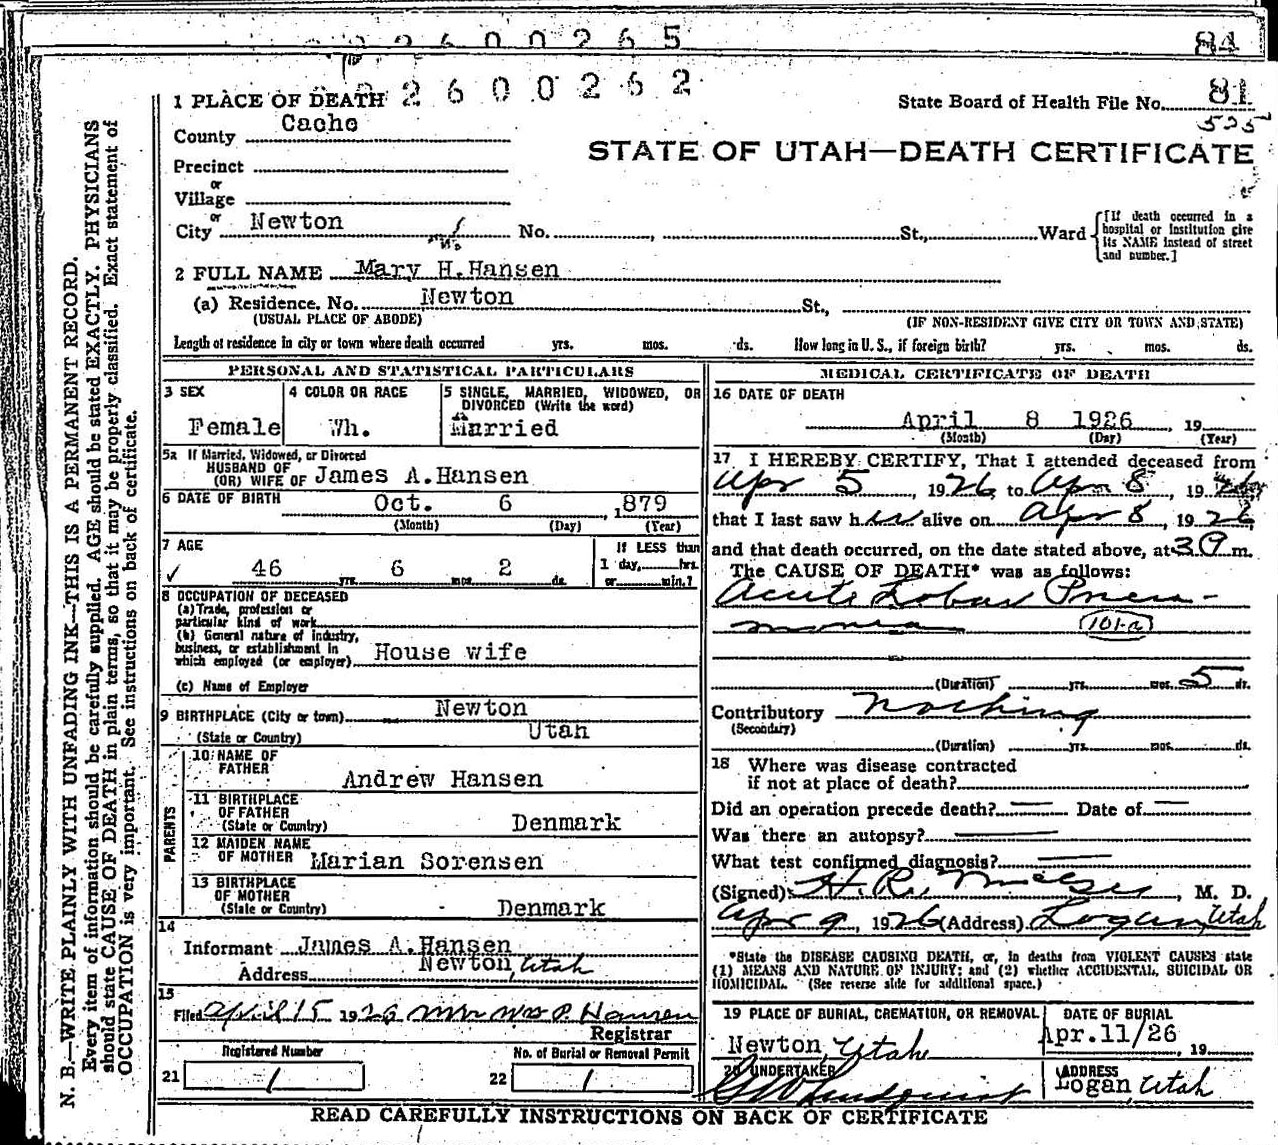 2 2 6 0 0 2 6 5
84
2 6 0 0 2 6 2
1 PLACE OF DEATH
State Board of Health File No. 81
525
County Cache
STATE OF UTAH—DEATH CERTIFICATE
Precinct
or
Village
or
City Newton No. , St., Ward
[If death occurred in a hospital or institution give its NAME instead of street and number.]
2 FULL NAME Mary H. Hansen
(a) Residence. No. Newton St.,
(USUAL PLACE OF ABODE) (IF NON-RESIDENT GIVE CITY OR TOWN AND STATE)
Length of residence in city or town where death occurred yrs. mos. ds. How long in U. S., if foreign birth? yrs. mos. ds.
PERSONAL AND STATISTICAL PARTICULARS
3 SEX Female
4 COLOR OR RACE Wh.
5 SINGLE, MARRIED, WIDOWED, OR DIVORCED (Write the word) Married
5a If Married, Widowed, or Divorced
HUSBAND OF
(OR) WIFE OF James A. Hansen
6 DATE OF BIRTH Oct. 6, 1879
(Month) (Day) (Year)
7 AGE
✓ 46 yrs. 6 mos. 2 ds.
If LESS than
1 day, hrs.
or min.?
8 OCCUPATION OF DECEASED
(a) Trade, profession or
particular kind of work
(b) General nature of industry,
business, or establishment in
which employed (or employer) House wife
(c) Name of Employer
9 BIRTHPLACE (City or town) Newton
(State or Country) Utah
PARENTS
10 NAME OF
FATHER Andrew Hansen
11 BIRTHPLACE
OF FATHER
(State or Country) Denmark
12 MAIDEN NAME
OF MOTHER Marian Sorensen
13 BIRTHPLACE
OF MOTHER
(State or Country) Denmark
14
Informant James A. Hansen
Address Newton, Utah
15
Filed April 15 1926 P. Hansen
Registrar
Registered Number
21 1
No. of Burial or Removal Permit
22 1
MEDICAL CERTIFICATE OF DEATH
16 DATE OF DEATH
April 8 1926, 19
(Month) (Day) (Year)
17 I HEREBY CERTIFY, That I attended deceased from
Apr 5, 1926 to Apr 8, 1926
that I last saw her alive on Apr 8, 1926
and that death occurred, on the date stated above, at 3 m.
The CAUSE OF DEATH* was as follows:
Acute Lobar Pneu-
monia (101-a)
(Duration) yrs. mos. 5 ds.
Contributory Nothing
(Secondary)
(Duration) yrs. mos. ds.
18 Where was disease contracted
if not at place of death?
Did an operation precede death? — Date of —
Was there an autopsy? —
What test confirmed diagnosis? —
(Signed) H. R. , M. D.
Apr 9, 1926 (Address) Logan, Utah
*State the DISEASE CAUSING DEATH, or, in deaths from VIOLENT CAUSES state
(1) MEANS AND NATURE OF INJURY; and (2) whether ACCIDENTAL, SUICIDAL OR
HOMICIDAL. (See reverse side for additional space.)
19 PLACE OF BURIAL, CREMATION, OR REMOVAL
Newton, Utah
DATE OF BURIAL
Apr. 11/26, 19
20 UNDERTAKER
ADDRESS
Logan, Utah
READ CAREFULLY INSTRUCTIONS ON BACK OF CERTIFICATE
N. B.—WRITE PLAINLY WITH UNFADING INK—THIS IS A PERMANENT RECORD.
Every item of information should be carefully supplied. AGE should be stated EXACTLY. PHYSICIANS
should state CAUSE OF DEATH in plain terms, so that it may be properly classified. Exact statement of
OCCUPATION is very important. See instructions on back of certificate.